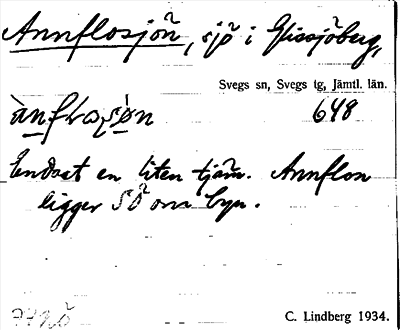 Annflosjön, sjö i Glissjöberg,
Svegs sn, Svegs tg, Jämtl. län.
648
Endast en liten tjärn. Annflon
ligger SÖ om byn.
C. Lindberg 1934.